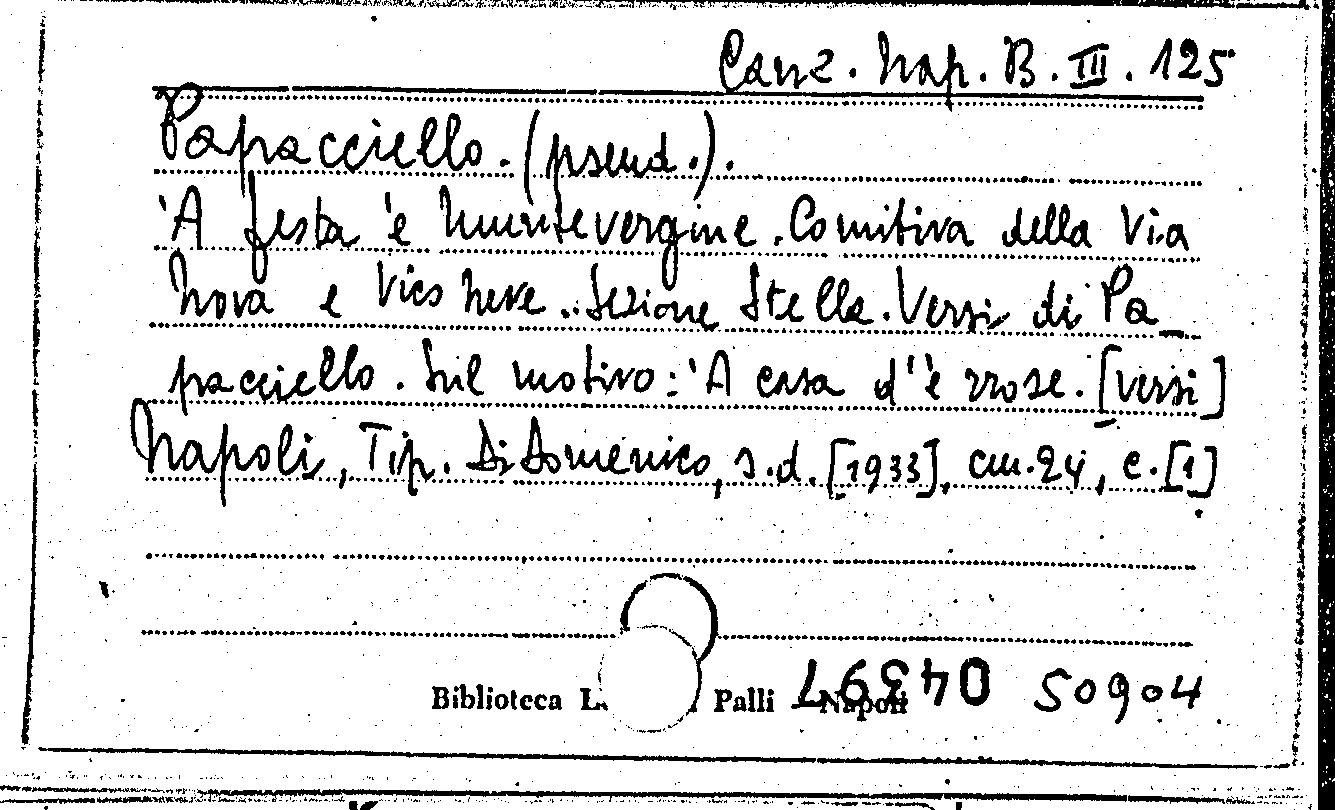 Canz. Nap. B. III. 125
Papacciello. (pseud.).
'A festa 'e Muntevergine. Comitiva della Via
Nova e Vico Neve. Sezione Stella. Versi di Pa_
pacciello. Sul motivo: 'A casa d''e rrose. [versi]
Napoli, Tip. Di Domenico, s.d. [1933], cm. 24, c. [1]
Biblioteca L. Palli Napoli 04397 50904